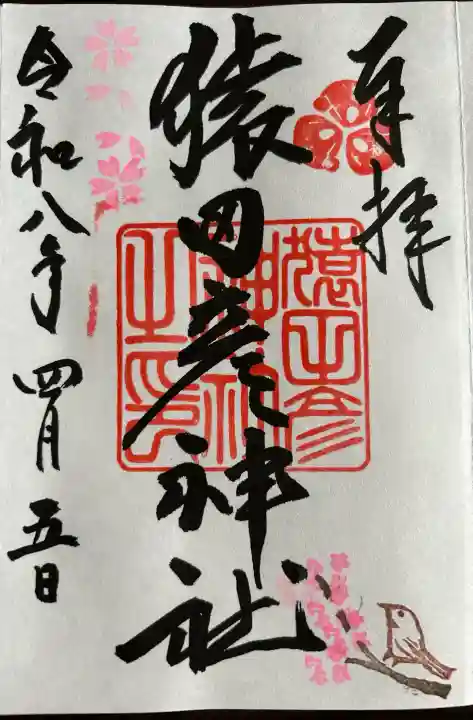 奉拝
猿田彦神社
猿田彦
神社
之印
令和八年四月五日